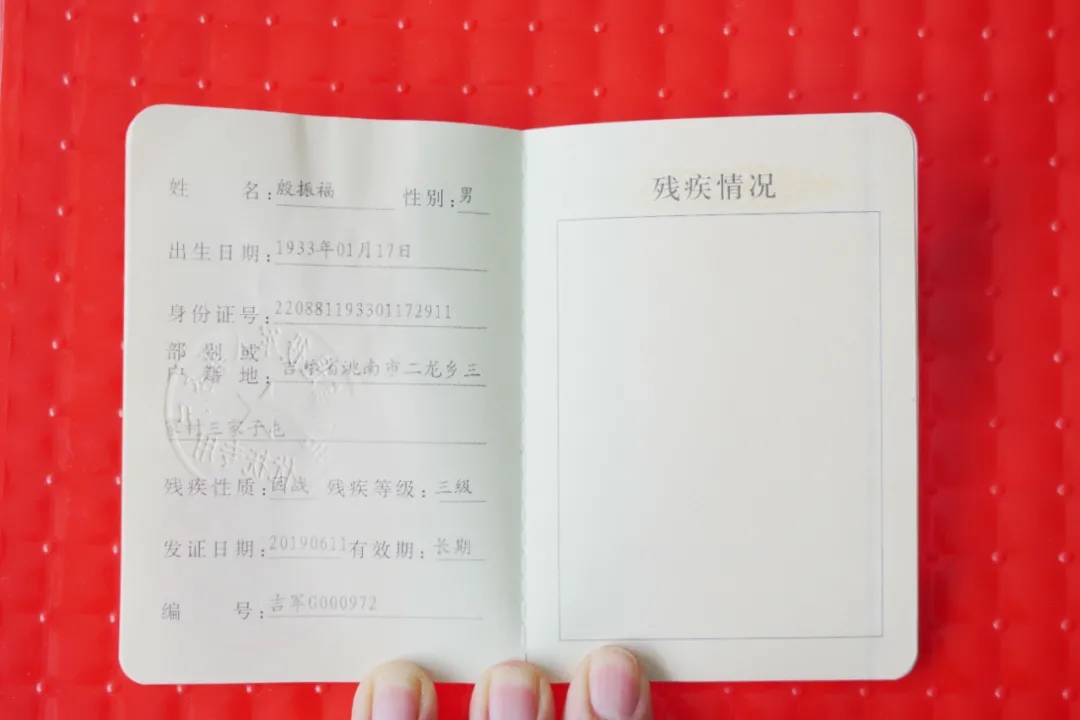 姓 名：殷振福 性别：男
出生日期：1933年01月17日
身份证号：220881193301172911
部别或
户籍地：吉林省洮南市二龙乡三
家村三家子屯
残疾性质：因战 残疾等级：三级
发证日期：20190611 有效期：长期
编 号：吉军G000972
残疾情况